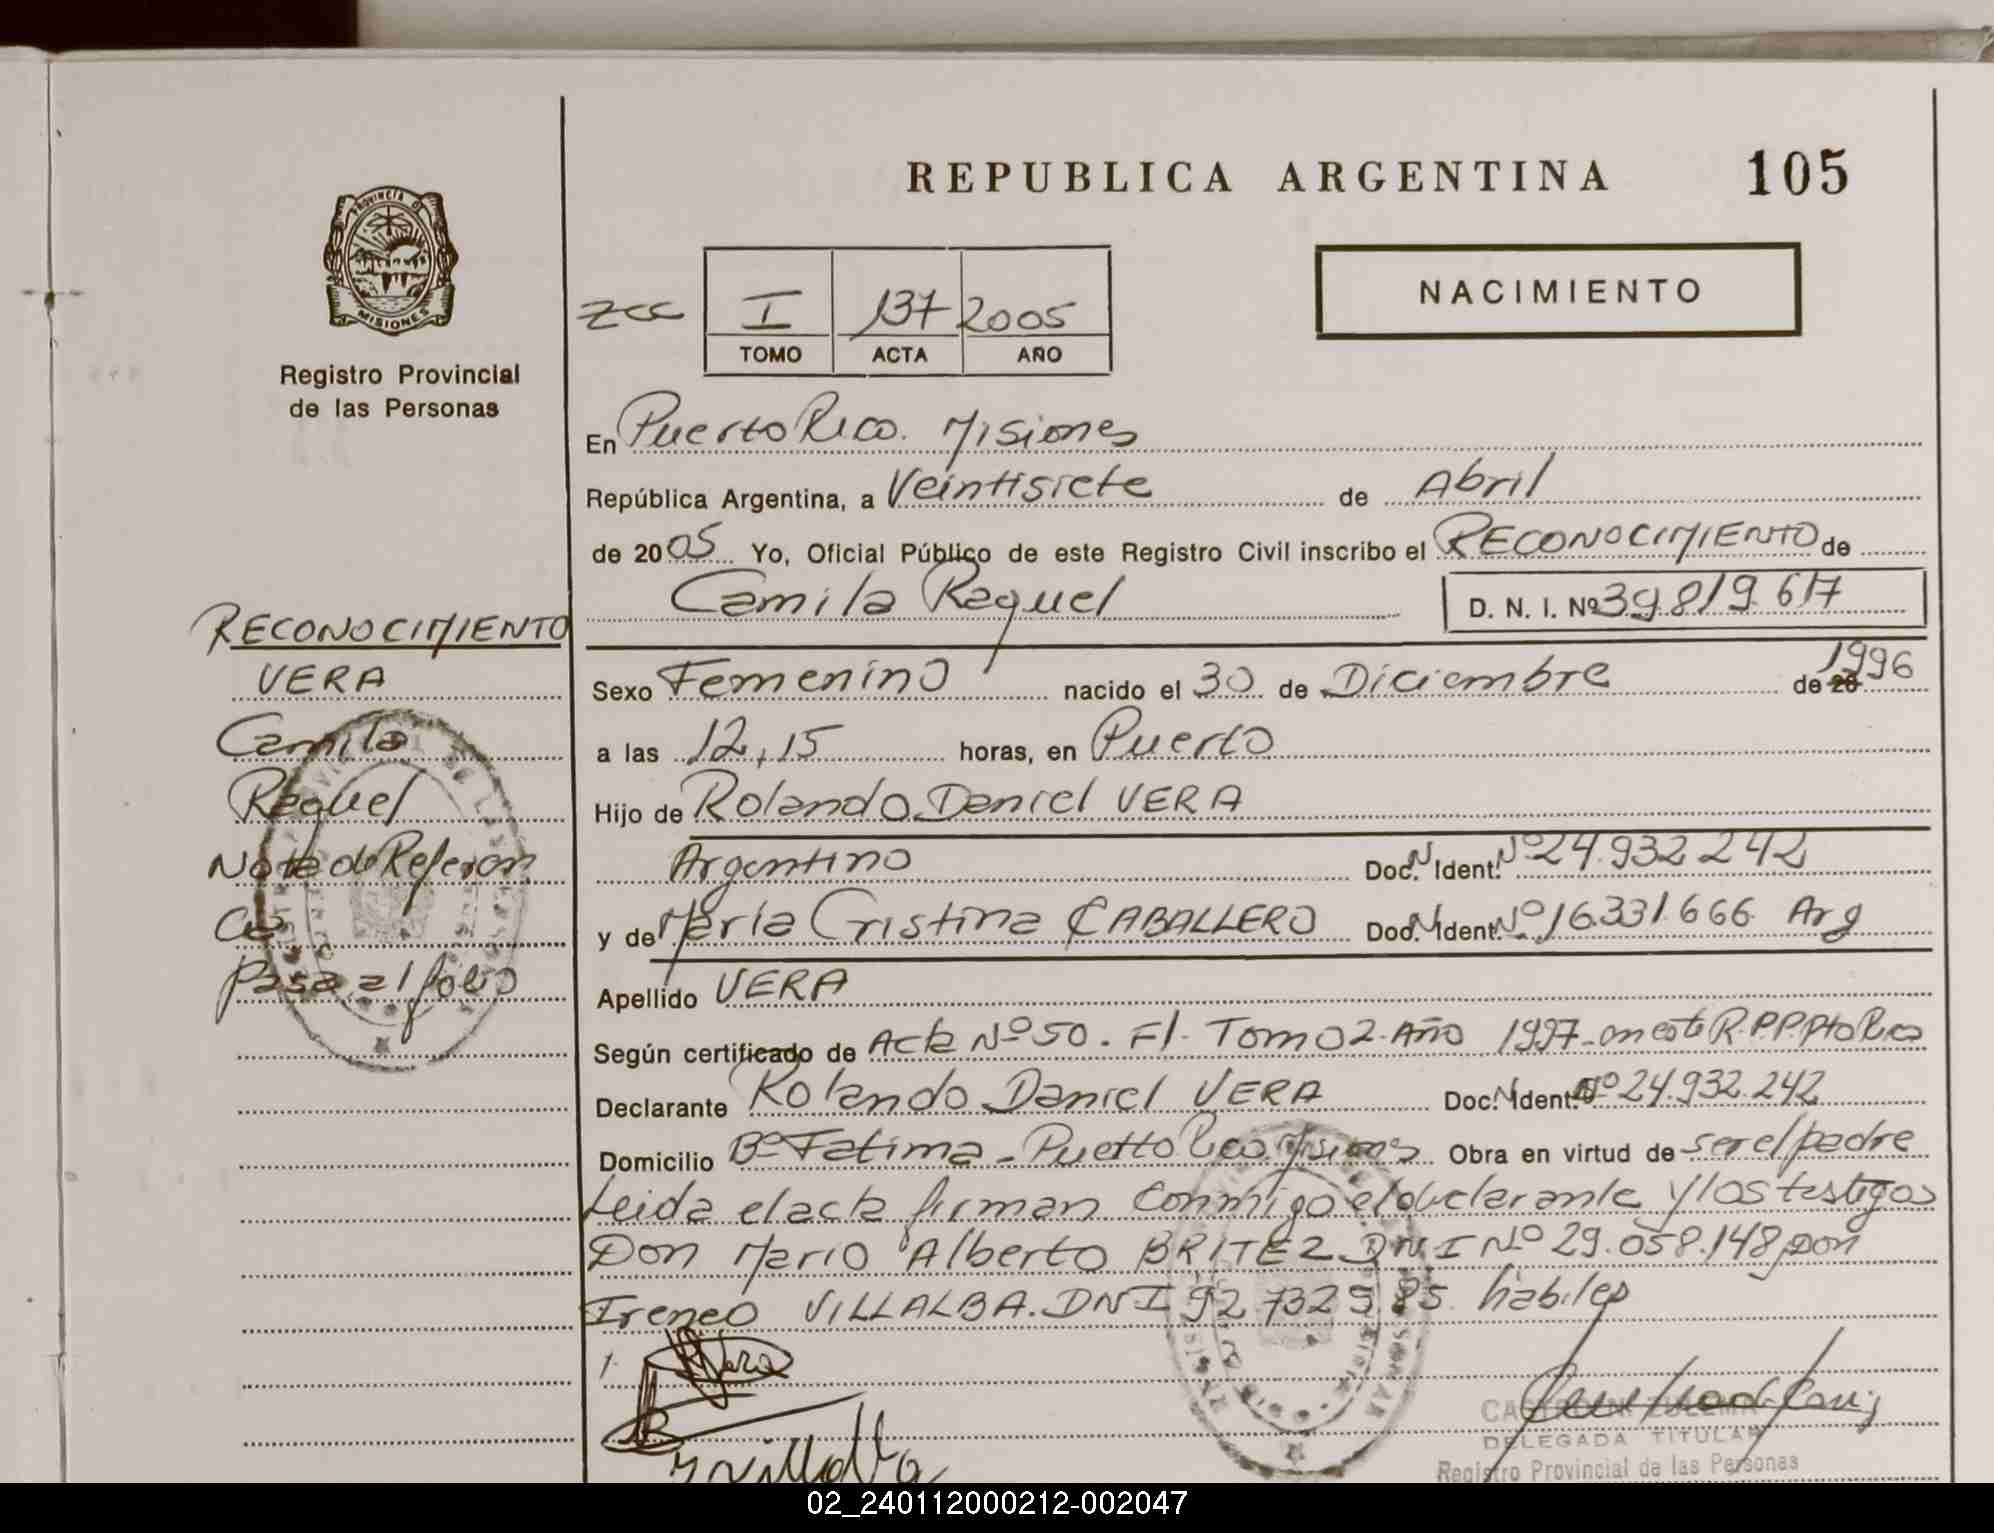 REPUBLICA ARGENTINA 105
PROVINCIA DE
MISIONES
Registro Provincial
de las Personas
NACIMIENTO
zcc I 137 2005
TOMO ACTA AÑO
En Puerto Rico. Misiones
República Argentina, a Veintisiete de Abril
de 2005 Yo, Oficial Público de este Registro Civil inscribo el RECONOCIMIENTO de
Camila Raquel D. N. I. Nº 39.819.617
Sexo Femenino nacido el 30 de Diciembre de 20 1996
a las 12,15 horas, en Puerto
Hijo de Rolando Daniel VERA
Argentino Doc. N. Ident. Nº 24.932.242
y de María Cristina CABALLERO Doc. N. Ident. Nº 16.331.666 Arg
Apellido VERA
Según certificado de Acta Nº 50. Fl. Tomo 2. Año 1997 en este R.P.P. Pto Rico
Declarante Rolando Daniel VERA Doc. N. Ident. Nº 24.932.242
Domicilio Bº Fatima - Puerto Rico. Misiones Obra en virtud de ser el padre
Leida el acta firman conmigo el declarante y los testigos
Don Mario Alberto BRITEZ DNI Nº 29.058.148, Don
Ireneo VILLALBA. DNI 92 732 9 85 habiles
1- Vera
Villalba
DELEGADA TITULAR
Registro Provincial de las Personas
RECONOCIMIENTO
VERA
Camila
Raquel
Nota de Referen
cia
pasa al folio
02_240112000212-002047